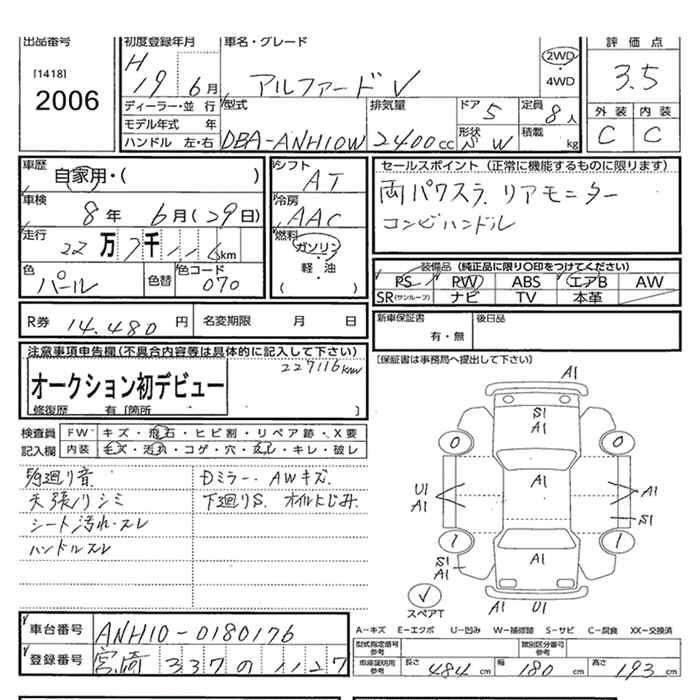 出品番号
[1418]
2006
初度登録年月
H 19年 6月
車名・グレード
アルファード V
2WD
・
4WD
評価点
3.5
外装 内装
C C
ディーラー・並行
モデル年式 年
ハンドル 左・右
型式
DBA-ANH10W
排気量
2400cc
ドア 5
形状 W
定員 8人
積載 kg
車歴
自家用・( )
車検
8年 6月(29日)
走行
22万7千116km
色
パール
色替
色コード
070
シフト
AT
冷房
AAC
燃料
ガソリン
・
軽・油
( )
セールスポイント (正常に機能するものに限ります)
両パワスラ リアモニター
コンビハンドル
装備品 (純正品に限り〇印をつけてください)
PS PW ABS エアB AW
SR(サンルーフ) ナビ TV 本革
R券 14.480円
名変期限 月 日
新車保証書
有・無
後日品
[保証書は事務局へ提出して下さい]
注意事項申告欄(不具合内容等は具体的に記入して下さい)
227116km
オークション初デビュー
修復歴 有 [箇所 ]
検査員
記入欄
FW キズ・飛石・ヒビ割・リペア跡・X要
内装 キズ・汚れ・コゲ・穴・スレ・キレ・破レ
廻り音
天張りシミ
シート汚れ・スレ
ハンドルスレ
Dミラー・AWキズ
下廻りS. オイルにじみ.
A1
S1
A1
0 0
A1
U1
A1
A1
S1
1 1
S1
A1
A1
A1 U1
スペアT
A-キズ E-エクボ U-凹み W-補修跡 S-サビ C-腐食 XX-交換済
車台番号
ANH10-0180176
登録番号
宮崎 337 の 1127
型式指定番号
参考
類別区分番号
参考
車庫証明用
参考
長さ 484cm
幅 180cm
高さ 193cm